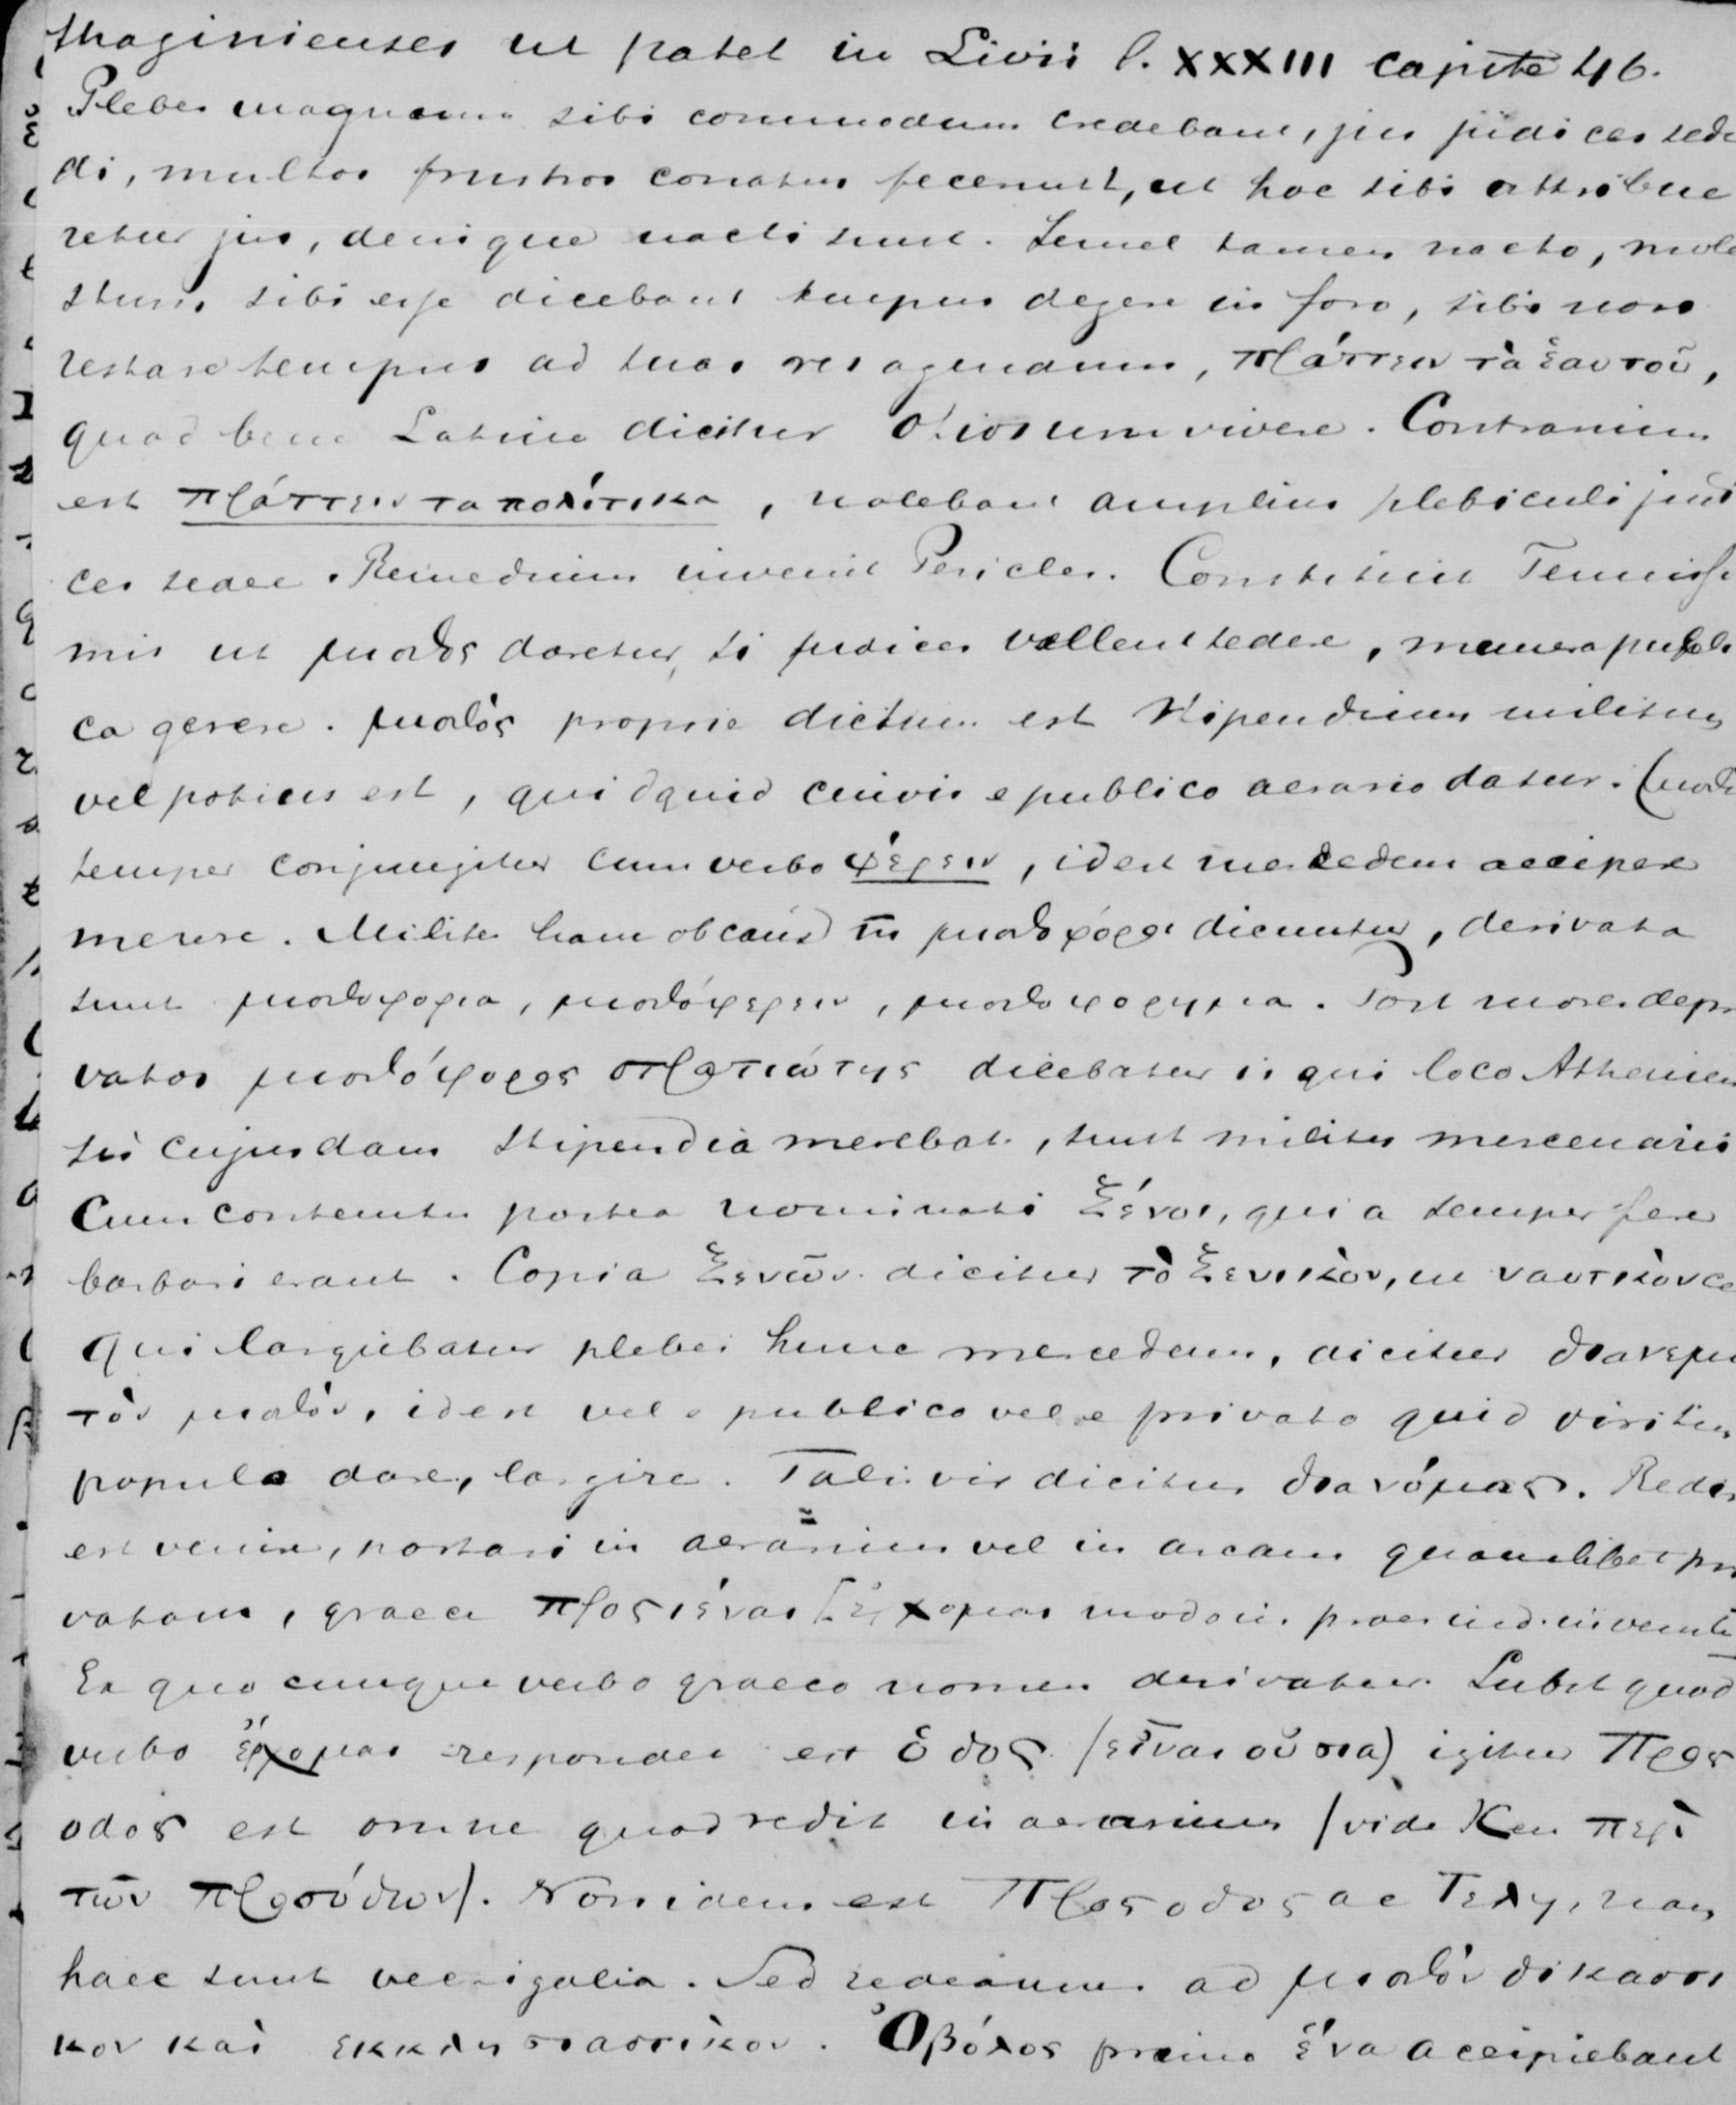 thaginienses ut patet in Livii l. XXXIII capite 46.
Plebes magnum sibi commodum credebant, jus judices sede
di, multos frustros conatus fecerunt, ut hoc sibi attribue
retur jus, denique nacti sunt. Semel tamen nacto, mole
stum sibi esse dicebant tempus degere in foro, sibi non
restare tempus ad suas res agendum, πράττειν τὰ ἑαυτοῦ,
quod bene Latine dicitur otiosum vivere. Contrarium
est πράττειν τα πολίτικα, nolebant amplius plebiculi judi
ces sedere. Remedium invenit Pericles. Constituit Tenuissi
mis ut μισθος daretur, si judices vellent sedere, munera publi
ca gerere. μισθός proprie dictum est stipendium militum
vel potius est, quidquid cuivis e publico aerario datur. (μισθ
semper conjungitur cum verbo φέρειν, id est mercedem accipere
merere. Milites hanc ob caus) μισθοφόροι dicuntur, derivata
sunt μισθοφορια, μισθόφερειν, μισθοφορημα. Post mores depr
vatos μισθόφορος στρατιώτης dicebatur is qui loco Athenien
sis cujusdam stipendia merebat, sunt milites mercenarii
Cum contemtu postea nominati Ξένοι, quia semper fere
barbari erant. Copia Ξενῶν dicitur τὸ Ξενικὸν, ut ναυτικὸν ce
Qui largiebatur plebei hunc mercedem, dicitur διανεμει
τὸν μισθὸν, id est vel e publico vel e privato quid viritim
populo dare, largire. Talis vir dicitur διανόμας. Redi
est venire, portari in aerarium vel in arcam quamlibet pri
vatam, graece προςιέναι [ἔρχομαι modo in praes ind. invenit
Ex quocunque verbo graeco nomen derivatur. Subst quod
verbo ἔρχομαι respondet est ὁδος (εἶναι οὖσια) igitur Προς
οδος est omne quod redit in aerarium (vide Xen περὶ
τῶν προσόδων). Non idem est Προςοδος ac Τελη, nam
haec sunt vectigalia. Sed redeamus ad μισθὸν δικαστι
κον καὶ εκκλησιαστικον. Ὀβόλος primo ἕνα accipiebant